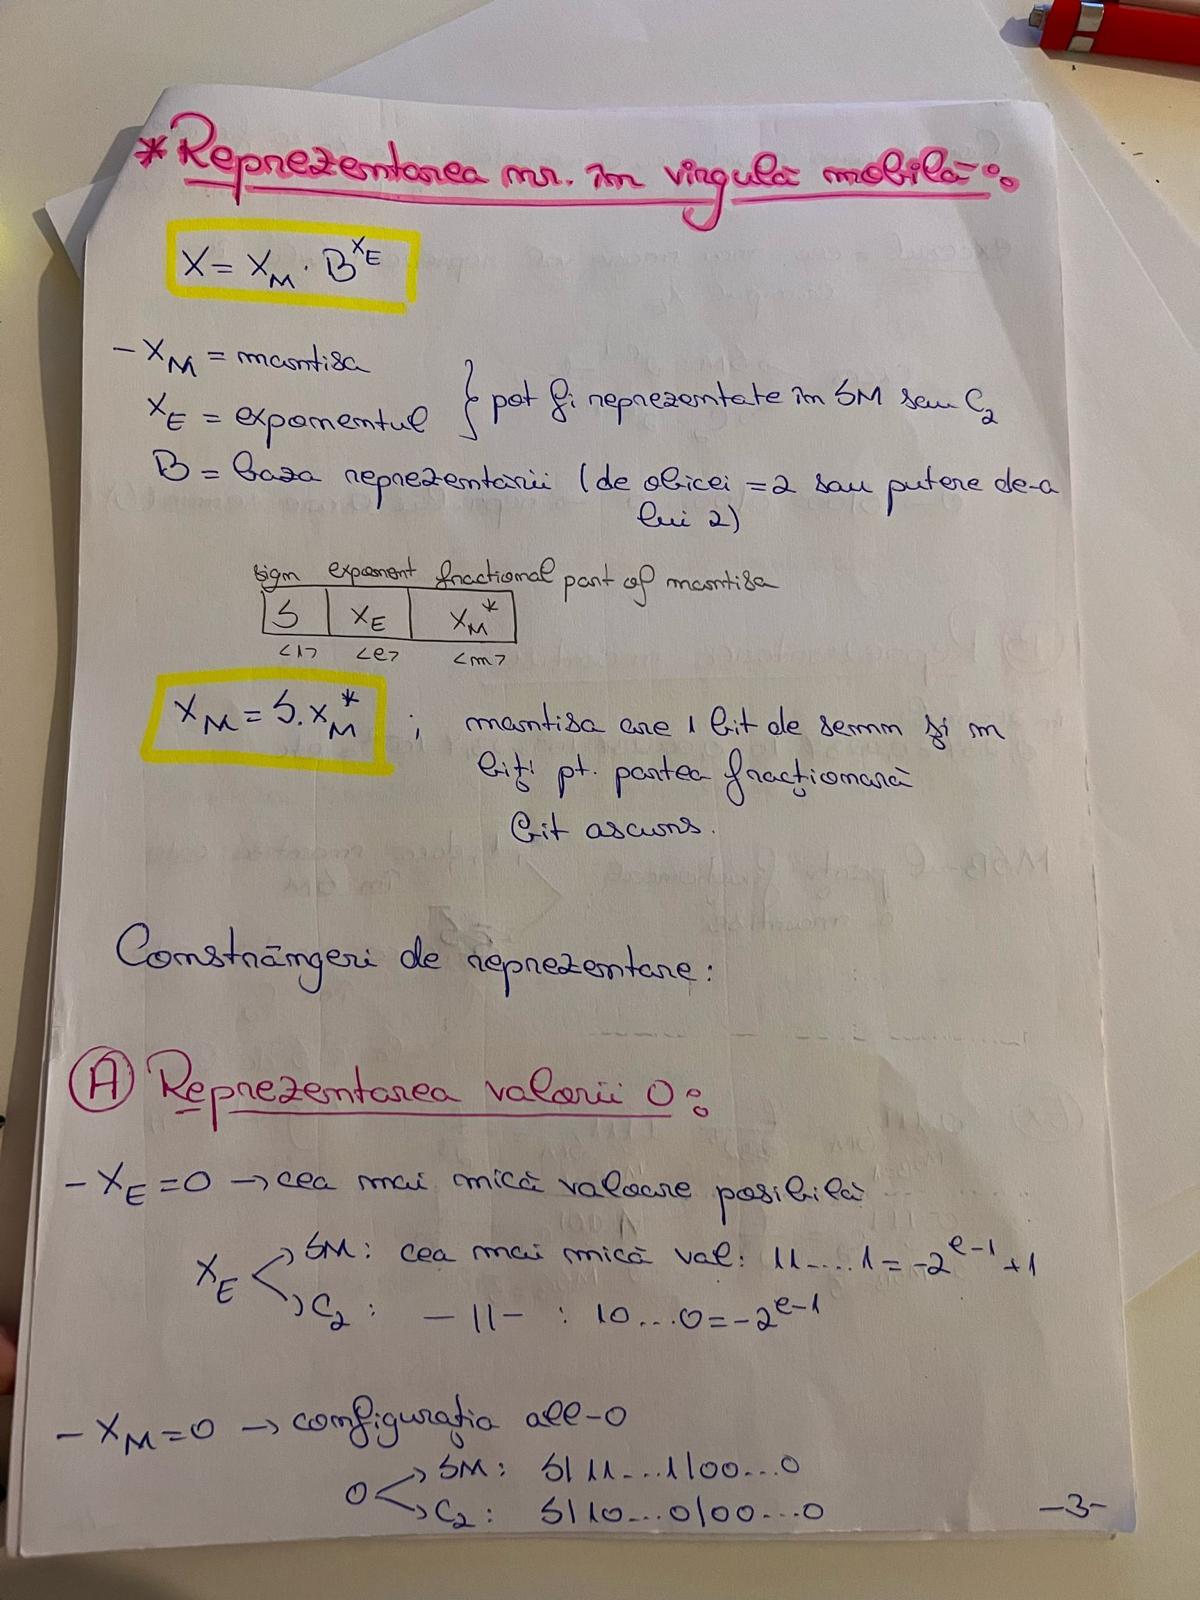 * Reprezentarea nr. în virgulă mobilă:
X = X_M · B^X_E
- X_M = mantisa
X_E = exponentul } pot fi reprezentate în SM sau C_2
B = baza reprezentării (de obicei = 2 sau putere de-a
lui 2)
sign exponent fractional part of mantisa
S | X_E | X_M*
<1> <e> <m>
X_M = S.X_M* ; mantisa are 1 bit de semn și m
biți pt. partea fracționară
bit ascuns.
Constrângeri de reprezentare:
(A) Reprezentarea valorii 0:
- X_E = 0 → cea mai mică valoare posibilă
X_E → SM: cea mai mică val: 11....1 = -2^e-1 + 1
→ C_2: -11- : 10...0 = -2^e-1
- X_M = 0 → configurația all-0
0 → SM: S|11...1|00...0
→ C_2: S|10...0|00...0
-3-